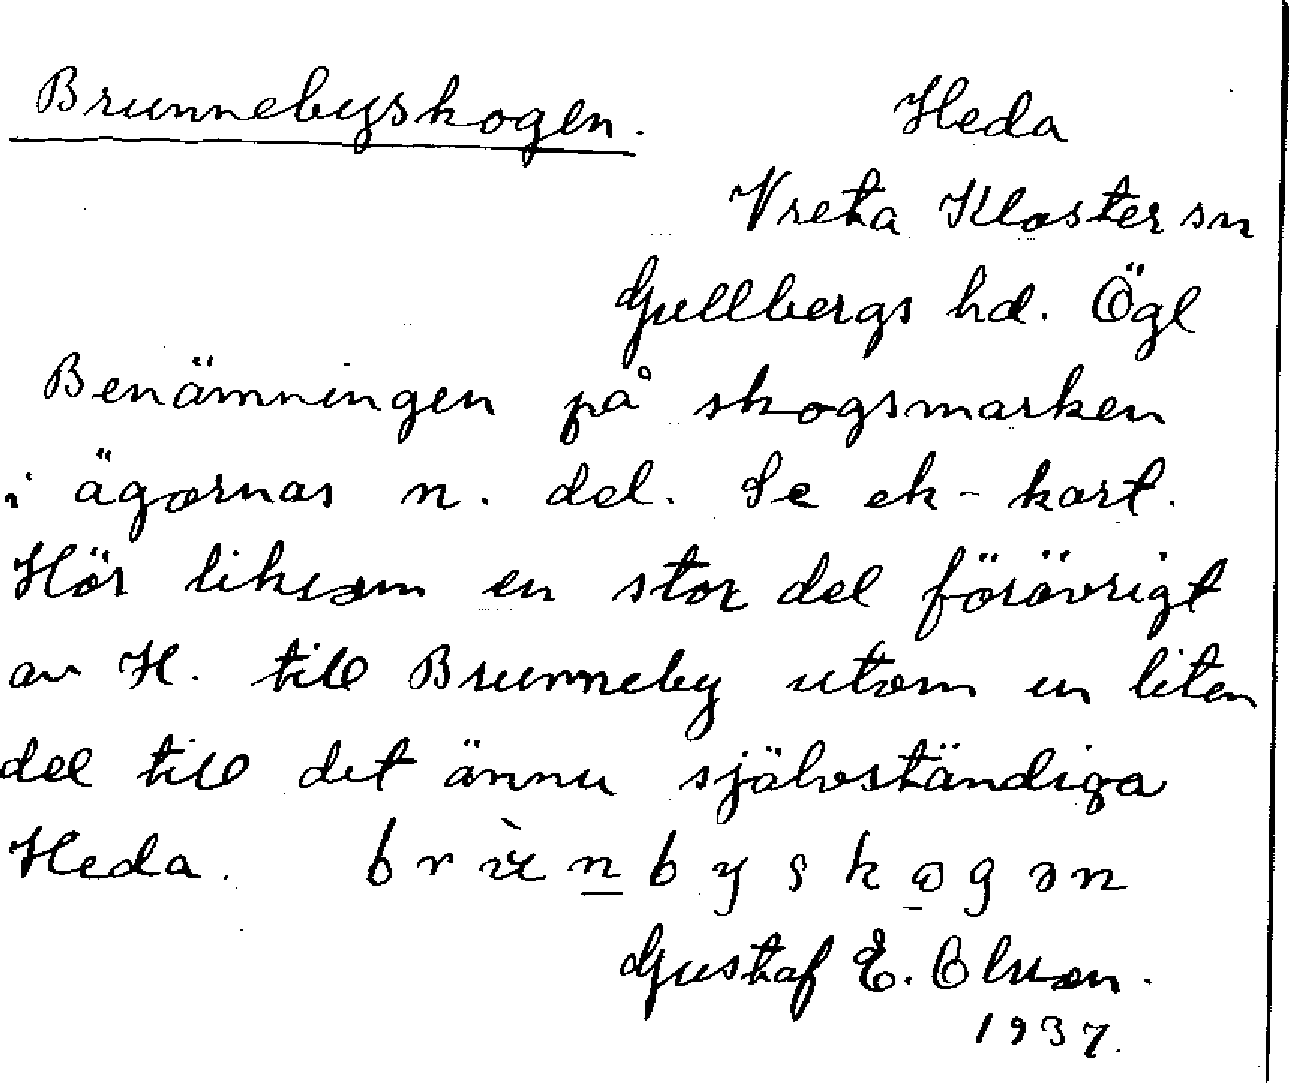 Brunnebyskogen. Heda
Vreta Kloster sn
Gullbergs hd. Ögl
Benämningen på skogsmarken
i ägornas n. del. Se ek-kart.
Hör liksom en stor del förövrigt
av H. till Brunneby utom en liten
del till det ännu självständiga
Heda. brùnbyskogən
Gustaf E. Olsson.
1937.